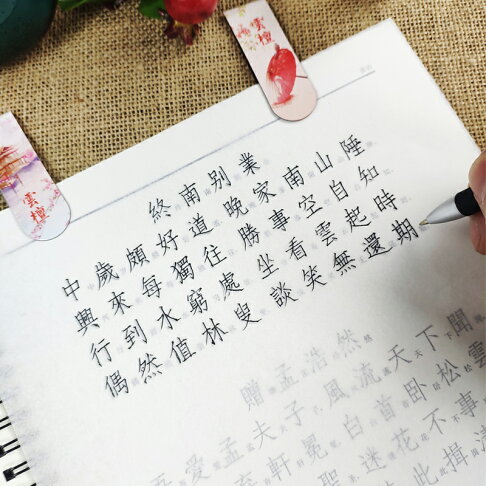 雲檀
雲檀
終南別業
中歲頗好道晚家南山陲
興來每獨往勝事空自知
行到水窮處坐看雲起時
偶然值林叟談笑無還期
贈孟浩然
吾愛孟夫子風流天下聞
棄軒冕白首臥松雲
聖迷花不事
此揖清